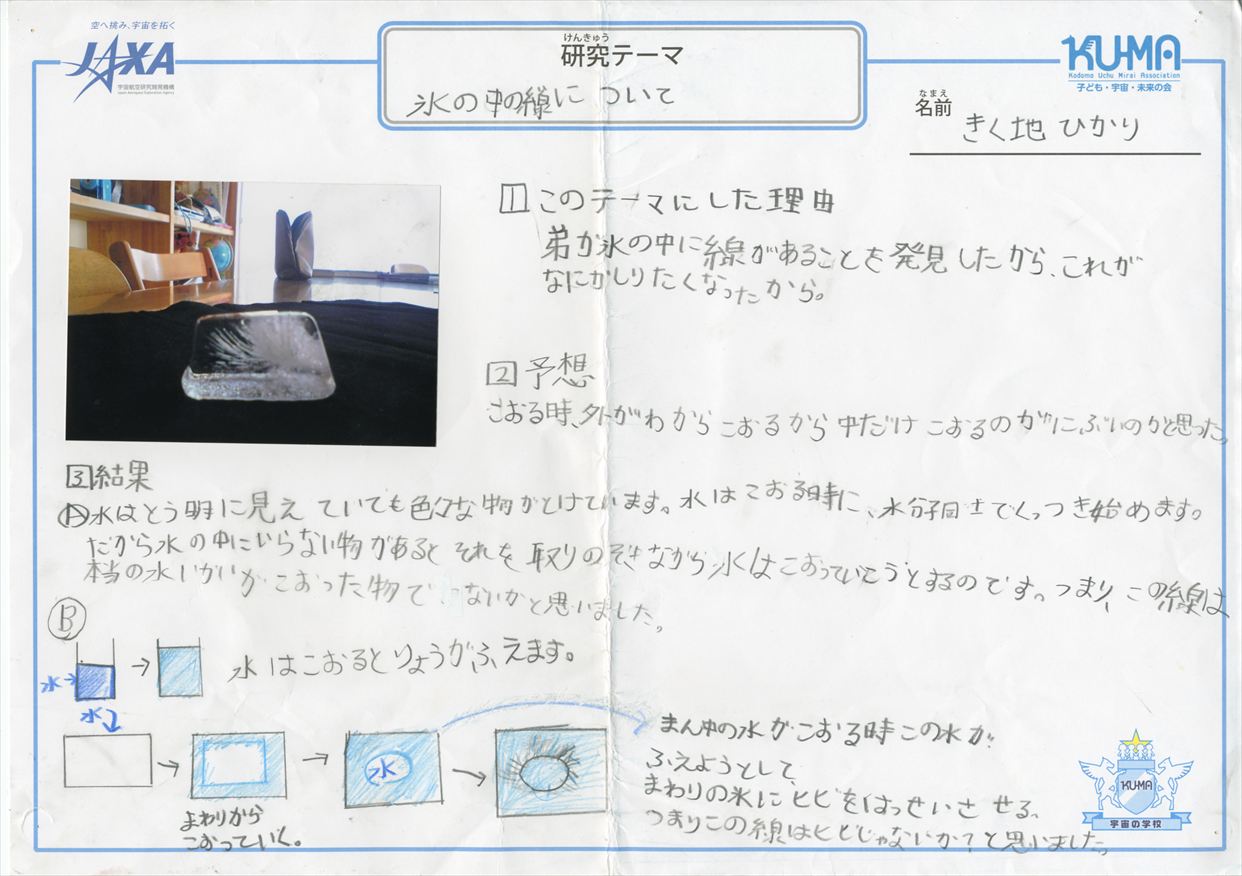 空へ挑み、宇宙を拓く
JAXA
宇宙航空研究開発機構
Japan Aerospace Exploration Agency
けんきゅう
研究テーマ
氷の中の線について
KU-MA
Kodomo Uchu Mirai Association
子ども・宇宙・未来の会
なまえ
名前
きく地 ひかり
1 このテーマにした理由
弟が氷の中に線があることを発見したから、これが
なにかしりたくなったから。
2 予想
こおる時、外がわからこおるから中だけこおるのがにぶいのかと思った。
3 結果
A 水はとう明に見えていても色々な物がとけています。水はこおる時に、水分子同士でくっつき始めます。
だから水の中にいらない物があるとそれを取りのぞきながら氷はこおっていこうとするのです。つまり、この線は
本当の水いがいがこおった物でないかと思いました。
B
水→
→
水はこおるとりょうがふえます。
水
→
→
水
→
まわりから
こおっていく。
まん中の水がこおる時この水が
ふえようとして、
まわりの氷にヒビをはっせいさせる。
つまりこの線はヒビじゃないか?と思いました。
KU-MA
宇宙の学校